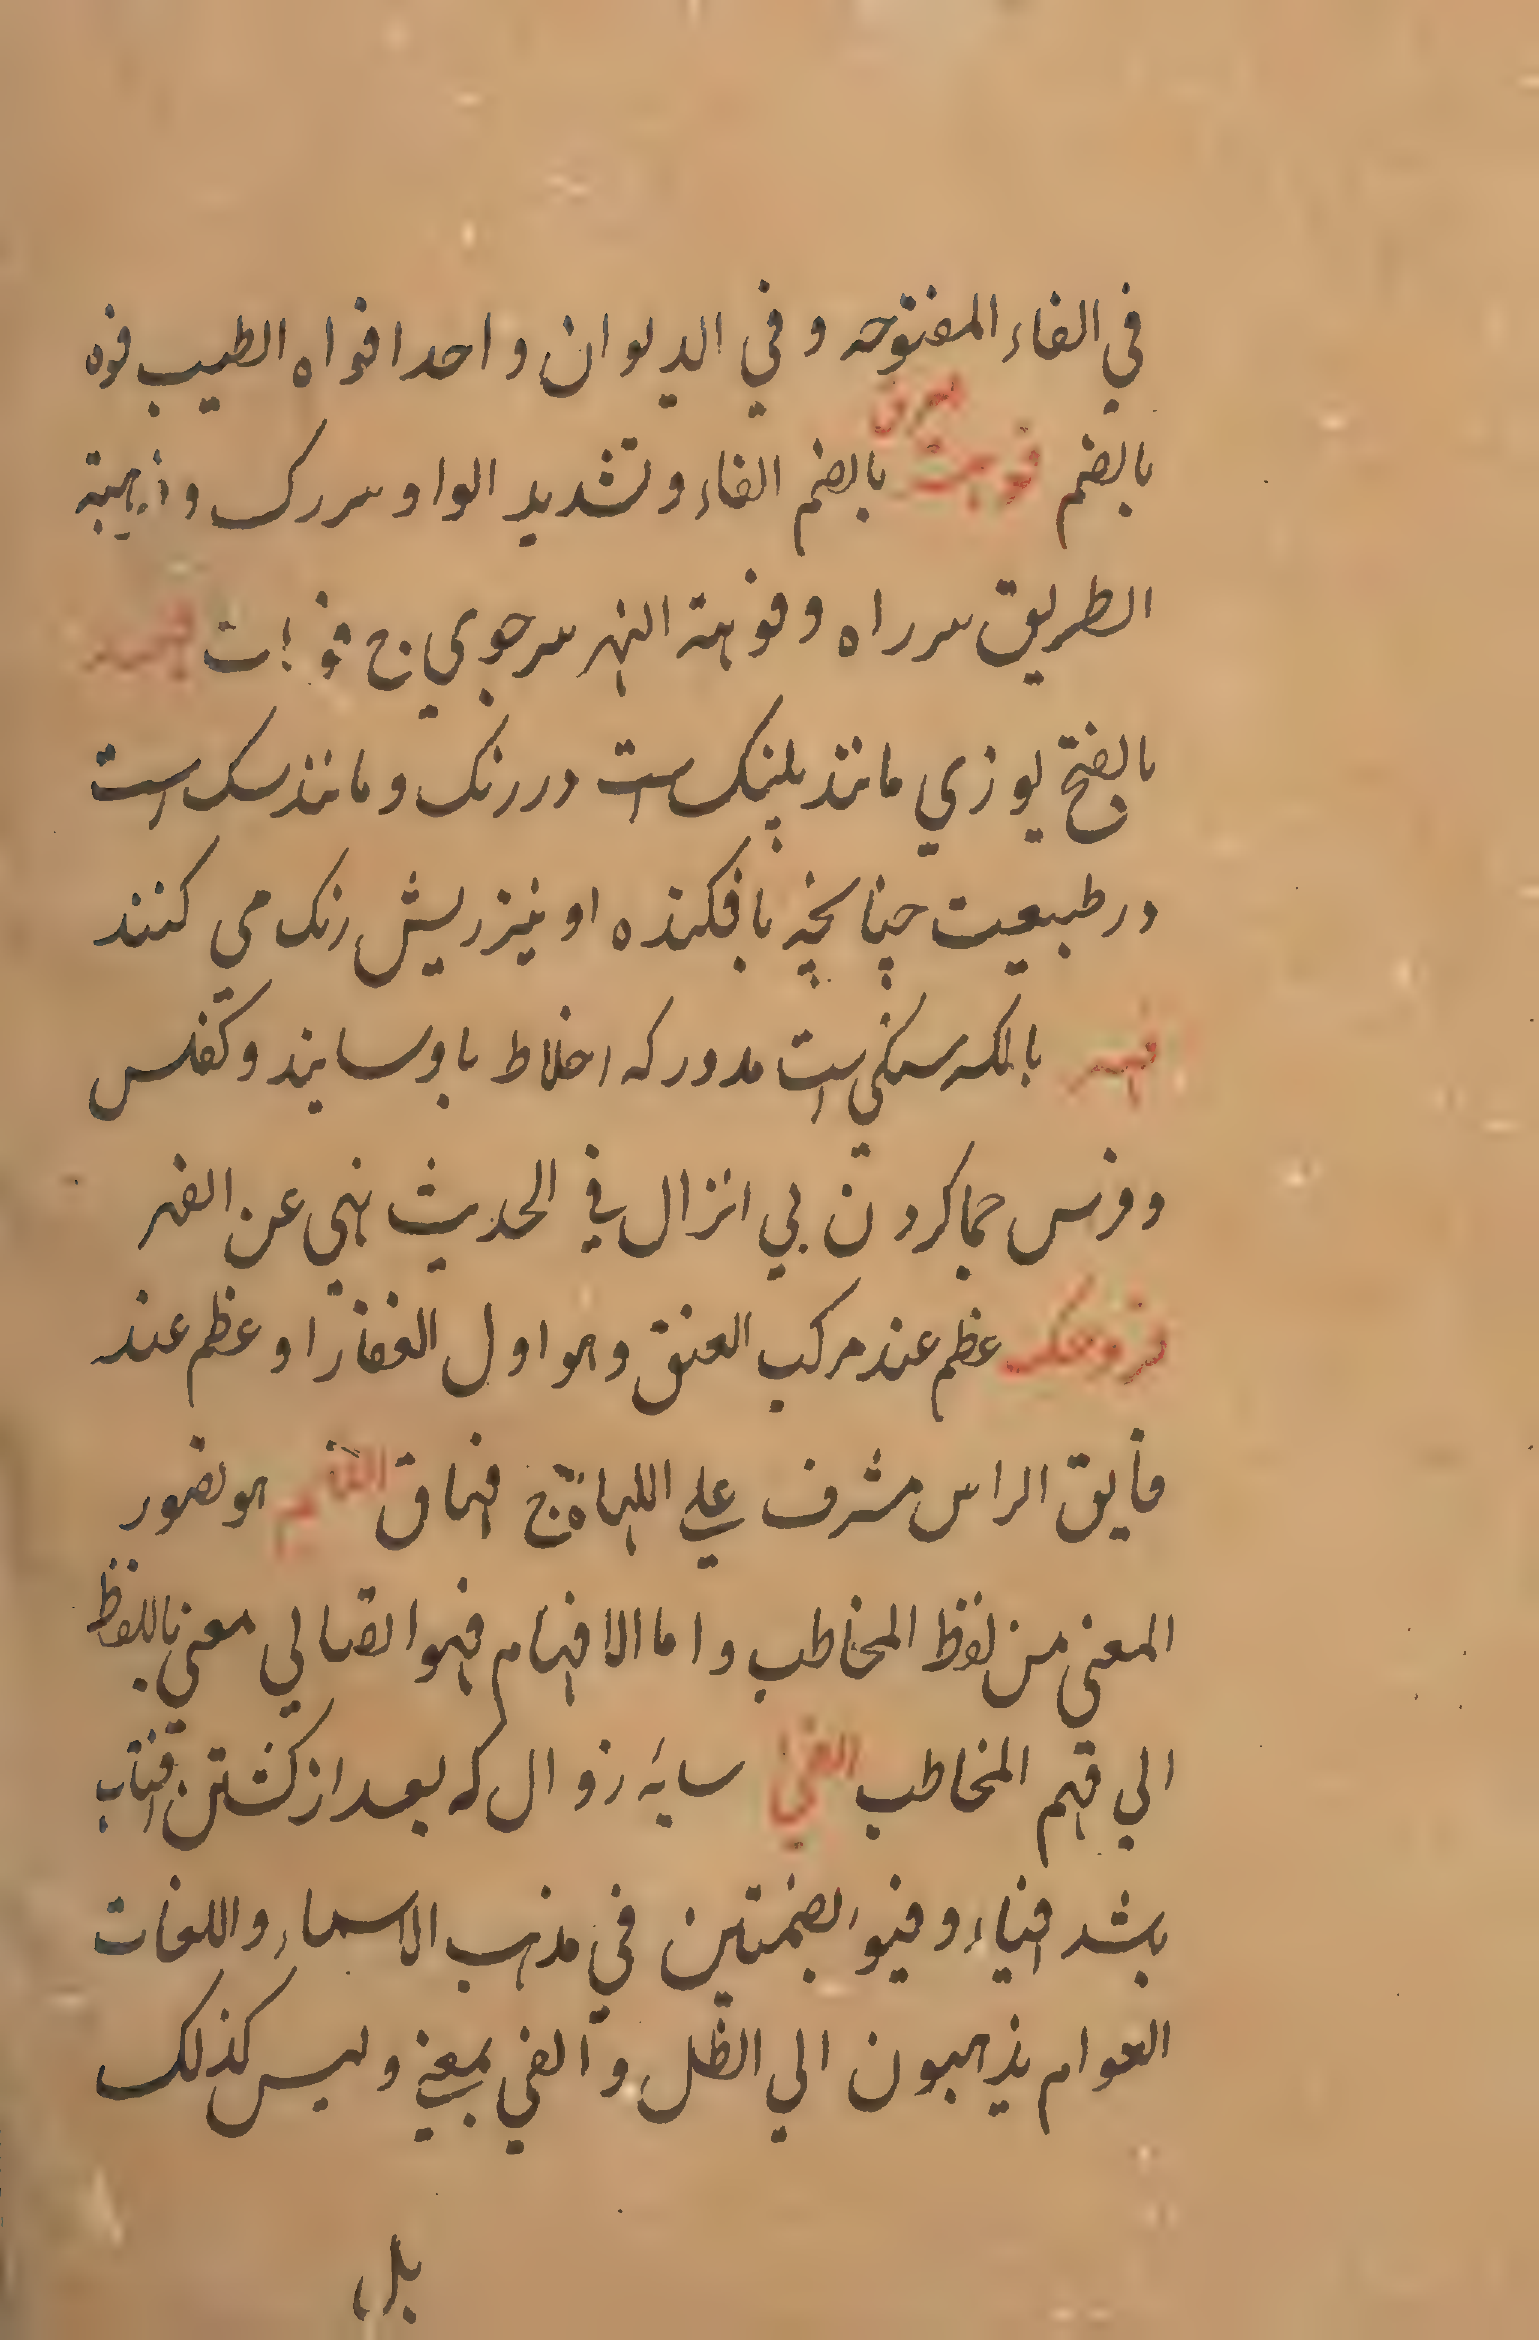 في الفاء المفتوحه و في الديوان واحد افواه الطيب فوه
بالضم فوهت بالضم الفاء و تشديد الواو سررك و
الطريق سرراه و فوهة النهر سرجوي ج فو!ت فهد
بالفتح يوزي مانند پلنک است دررنک و مانند سک است
درطبيعت چنانچه بافکنده او نيز ريش رنک مي کنند
فهر بالکسر سنکي است مدور که اخلاط باو سايند و کفلس
و فرنس جماکردن بي انزال في الحديث نهي عن الفهر
عظم عند مرکب العنق و هو اول الفقار او عظم عند
فايق الراس مشرف علي اللهاة ج فهاق الفهم هو تصور
المعني من لفظ المخاطب و اما الافهام فهو ايصالي معني باللفظ
الي فهم المخاطب الفي سايه زوال که بعد از کشتن افتاب
باشد افياء و فيو بضمتين في مذهب الاسماء و اللغات
العوام يذهبون الي الظل و الفي بمعني و ليس کذلک
بل